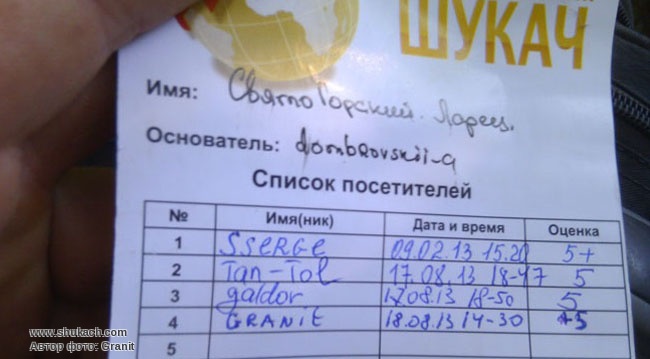 ШУКАЧ
Имя: СвятоГорский Ларец.
Основатель: dombrovskii-a
Список посетителей
№ Имя(ник) Дата и время Оценка
1 SSERGE 09.02.13 15.20 5+
2 Tan-Tol 17.08.13 18-47 5
3 galdor 17.08.13 18-50 5
4 GRANIT 18.08.13 14-30 +5
5
www.shukach.com
Автор фото: Granit